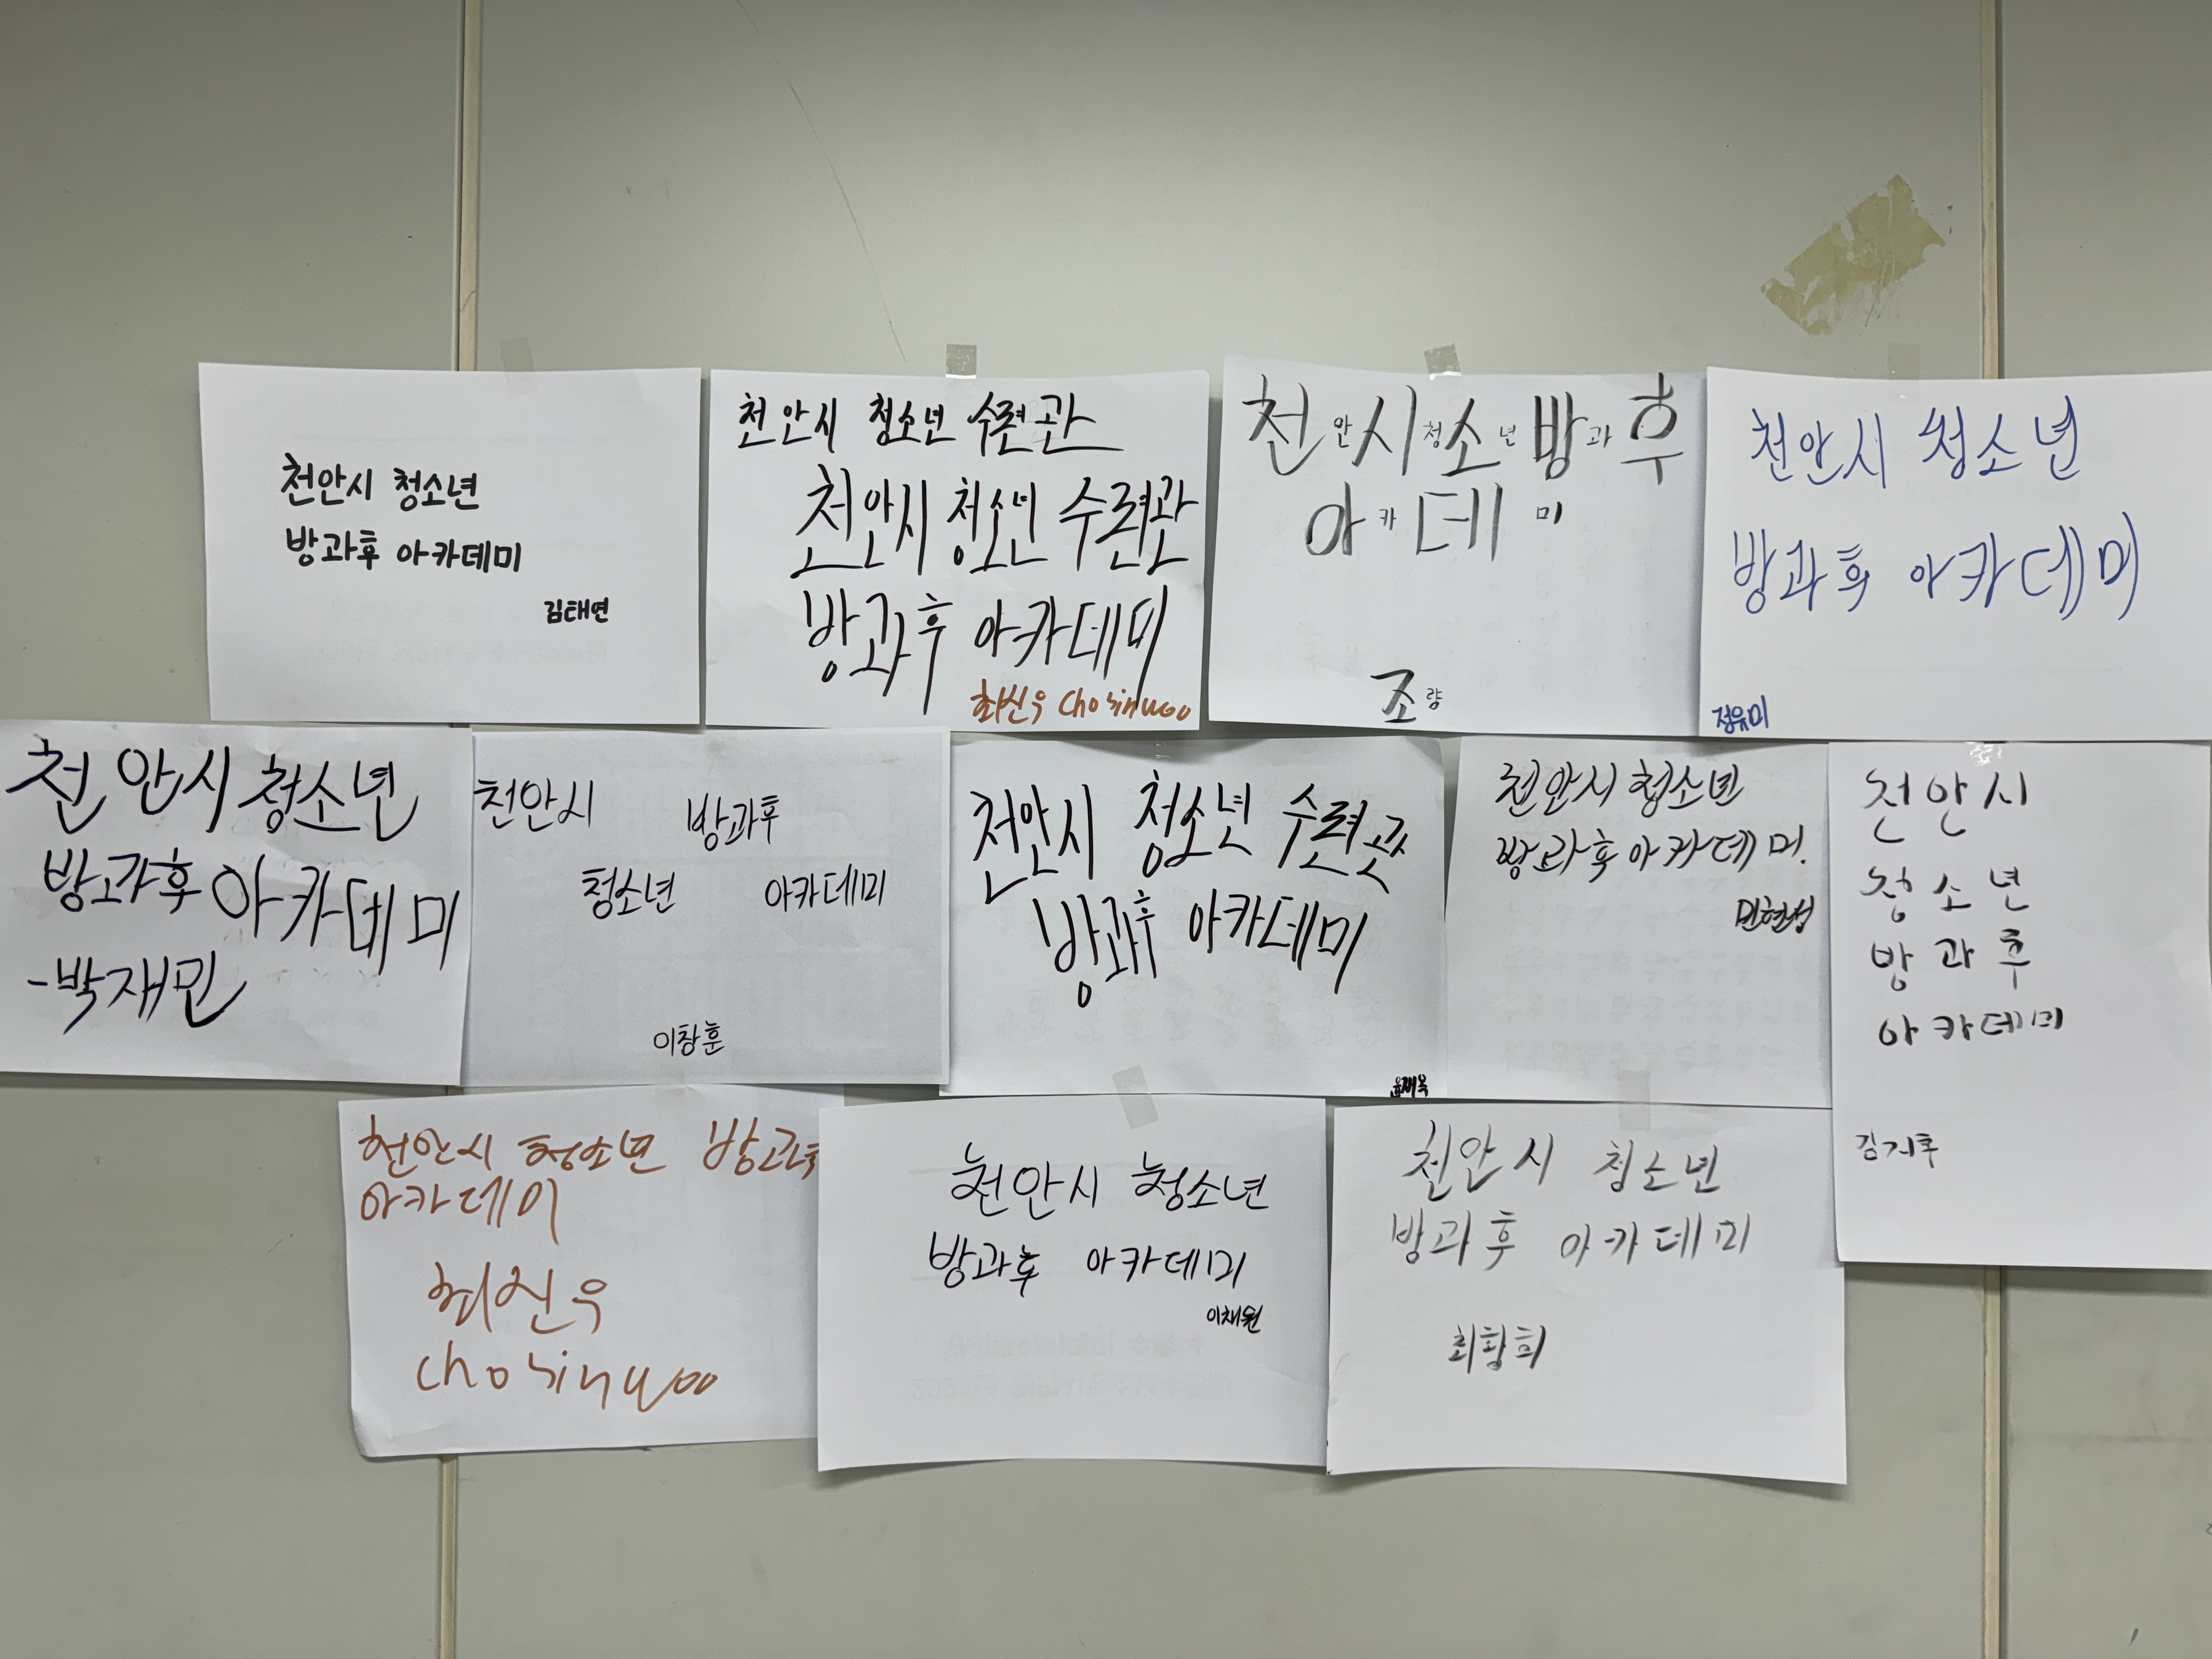 천안시 청소년
방과후 아카데미
김태연
천안시 청소년 수련관
천안시 청소년 수련관
방과후 아카데미
최신우 Chosinwoo
천안시청소년방과후
아카데미
조량
천안시 청소년
방과후 아카데미
정유미
천안시 청소년
방과후 아카데미
-박재민
천안시 방과후
청소년 아카데미
이창훈
천안시 청소년 수련관
방과후 아카데미
윤재욱
천안시 청소년
방과후 아카데미.
민현성
천안시
청소년
방과후
아카데미
김지후
천안시 청소년 방과후
아카데미
최신우
Chosinwoo
천안시 청소년
방과후 아카데미
이채원
천안시 청소년
방과후 아카데미
최황희